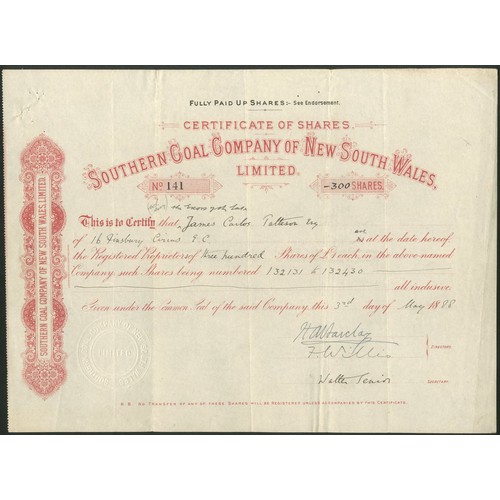 FULLY PAID UP SHARES:- See Endorsement.
CERTIFICATE OF SHARES.
SOUTHERN COAL COMPANY OF NEW SOUTH WALES,
LIMITED.
No 141
-300 SHARES.
This is to Certify that James Carlos Tetterson Esq
of 16 Finsbury Circus E.C. at the date hereof
the Registered Proprietor of three hundred Shares of £1 each, in the above named
Company, such Shares being numbered 132131 to 132430
all inclusive.
Given under the Common Seal of the said Company, this 3rd day of May 1888
H A Barclay
DIRECTORS.
Walter Senior
SECRETARY.
N.B. NO TRANSFER OF ANY OF THESE SHARES WILL BE REGISTERED UNLESS ACCOMPANIED BY THIS CERTIFICATE.
SOUTHERN COAL COMPANY OF NEW SOUTH WALES, LIMITED.